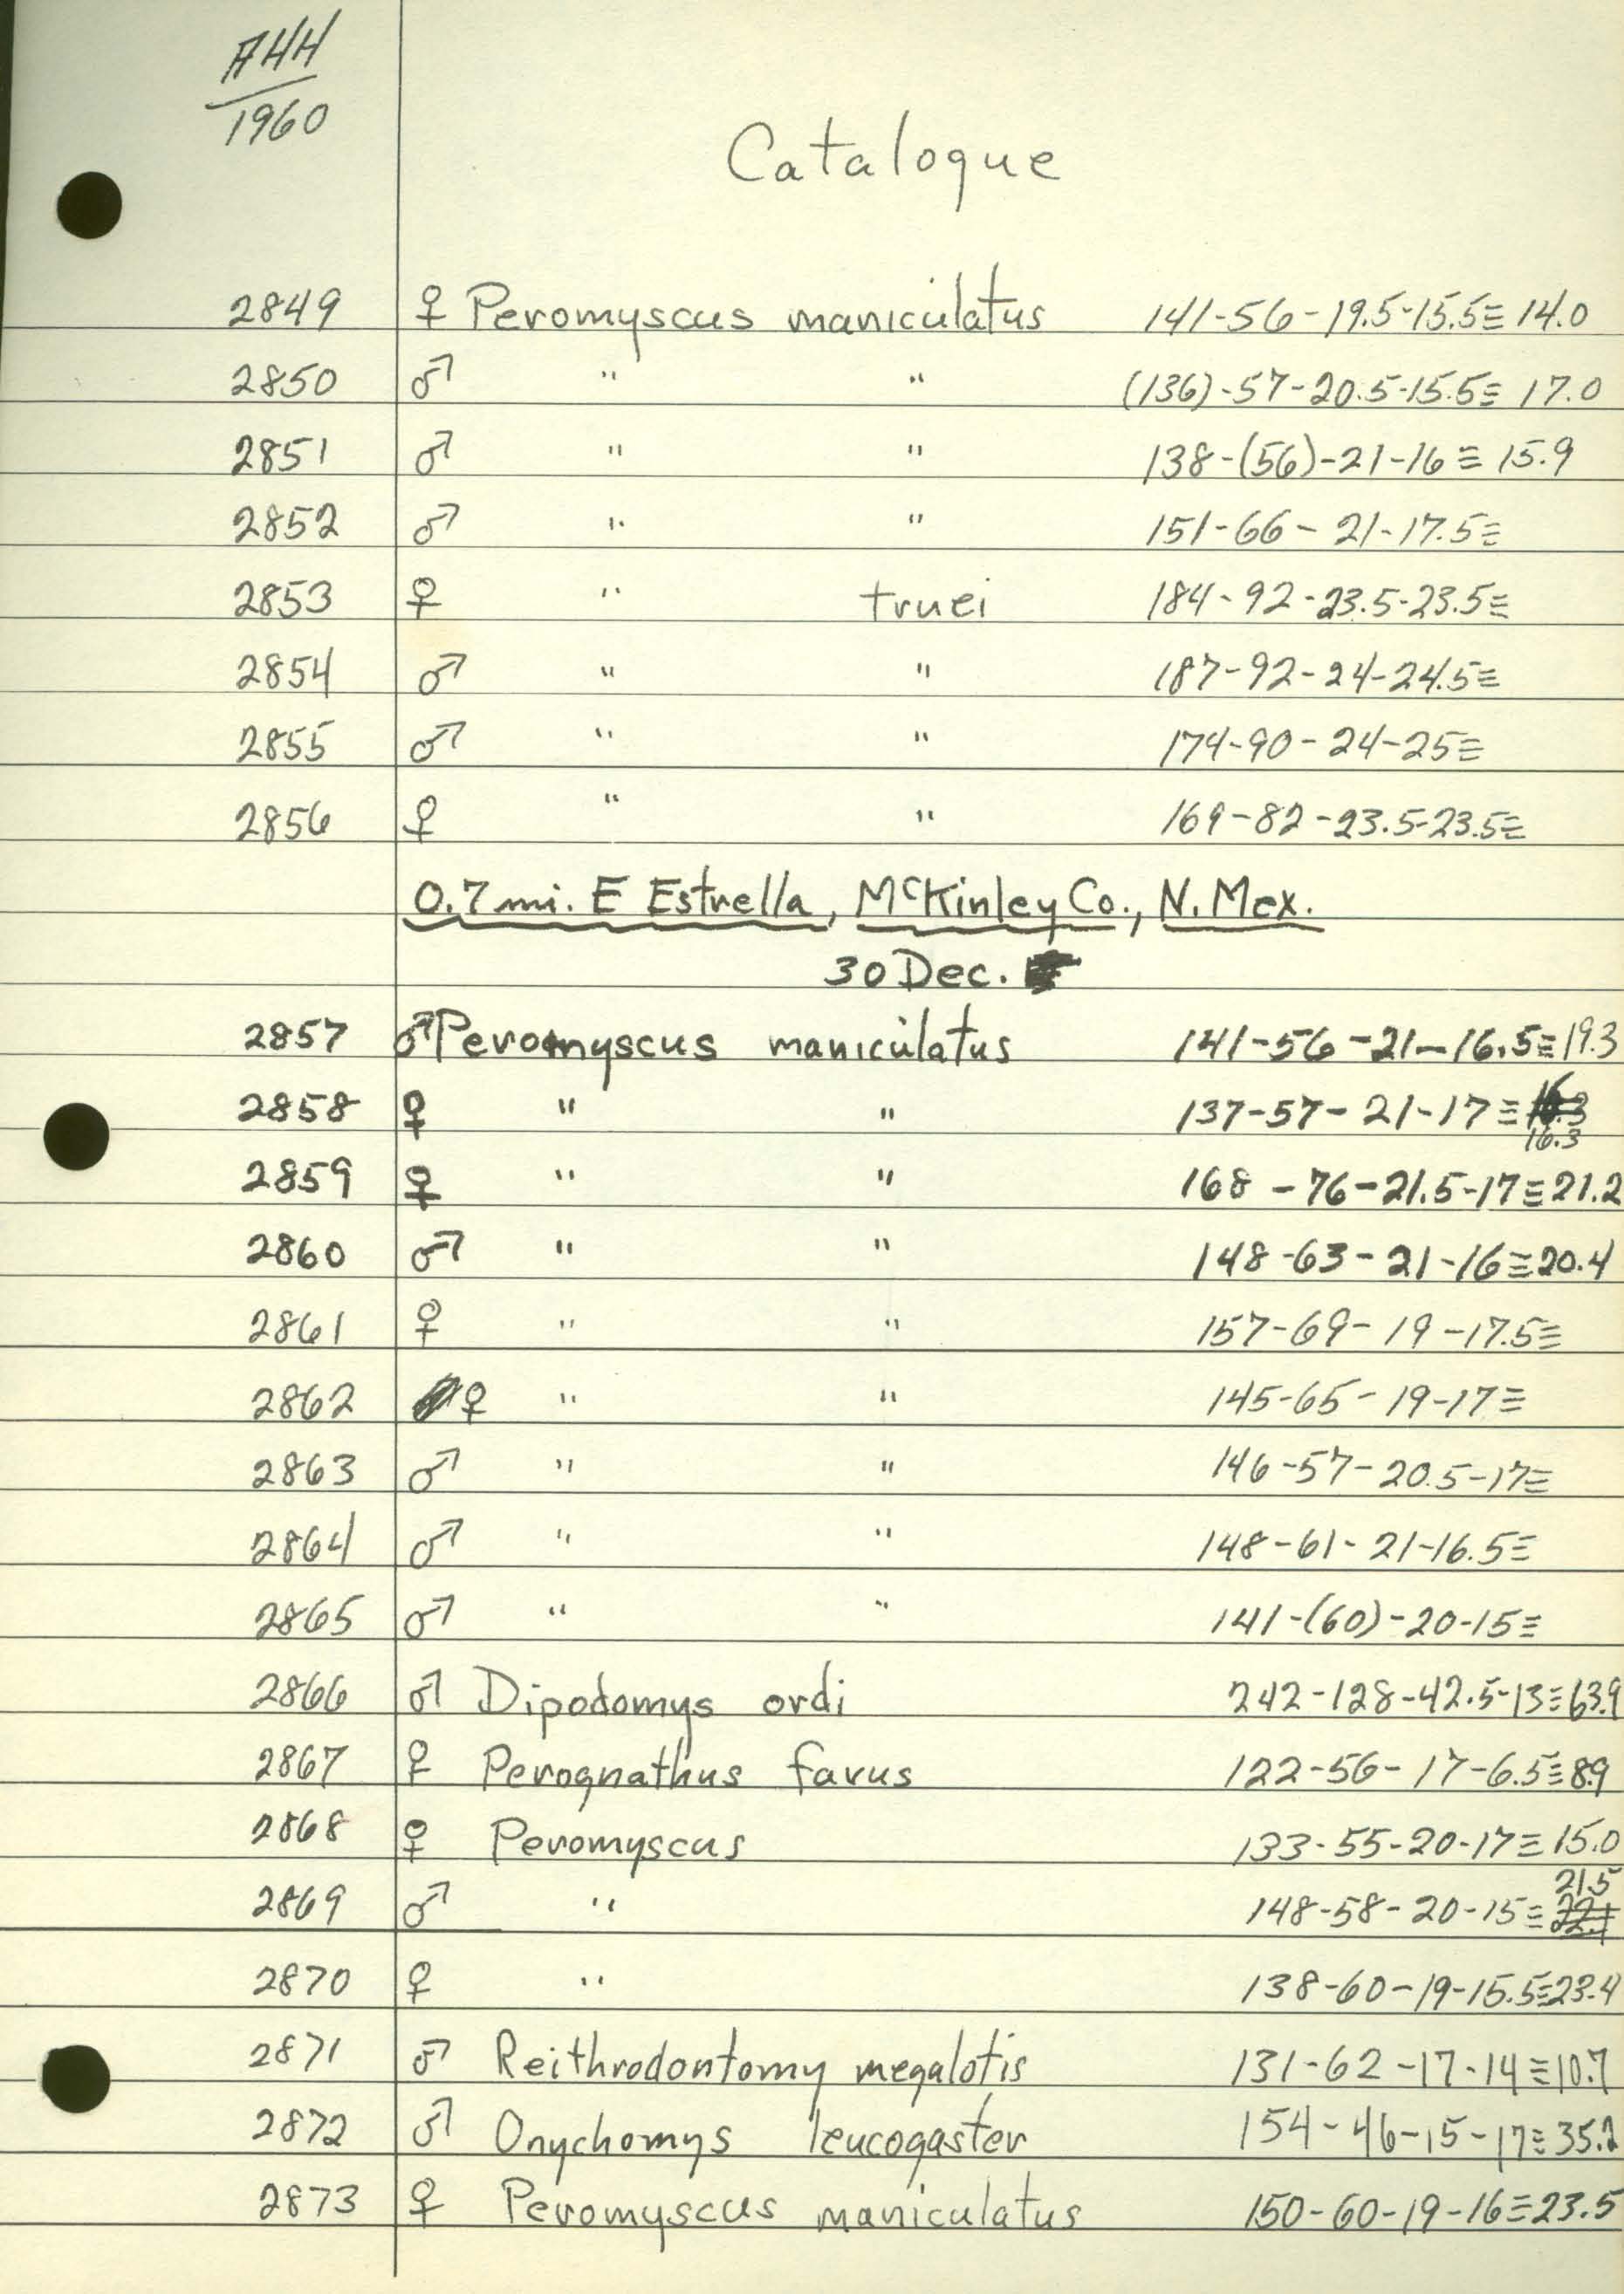 AHH
1960
Catalogue
2849 ♀ Peromyscus maniculatus 141-56-19.5-15.5≡14.0
2850 ♂ " " (136)-57-20.5-15.5≡17.0
2851 ♂ " " 138-(56)-21-16≡15.9
2852 ♂ " " 151-66-21-17.5≡
2853 ♀ " truei 184-92-23.5-23.5≡
2854 ♂ " " 187-92-24-24.5≡
2855 ♂ " " 174-90-24-25≡
2856 ♀ " " 169-82-23.5-23.5≡
0.7 mi. E Estrella, McKinley Co., N. Mex.
30 Dec.
2857 ♂ Peromyscus maniculatus 141-56-21-16.5≡19.3
2858 ♀ " " 137-57-21-17≡
16.3
2859 ♀ " " 168-76-21.5-17≡21.2
2860 ♂ " " 148-63-21-16≡20.4
2861 ♀ " " 157-69-19-17.5≡
2862 ♀ " " 145-65-19-17≡
2863 ♂ " " 146-57-20.5-17≡
2864 ♂ " " 148-61-21-16.5≡
2865 ♂ " " 141-(60)-20-15≡
2866 ♂ Dipodomys ordi 242-128-42.5-13≡63.9
2867 ♀ Perognathus favus 122-56-17-6.5≡8.9
2868 ♀ Peromyscus 133-55-20-17≡15.0
21.5
2869 ♂ " 148-58-20-15≡22.1
2870 ♀ " 138-60-19-15.5≡23.4
2871 ♂ Reithrodontomy megalotis 131-62-17-14≡10.7
2872 ♂ Onychomys leucogaster 154-46-15-17≡35.2
2873 ♀ Peromyscus maniculatus 150-60-19-16≡23.5